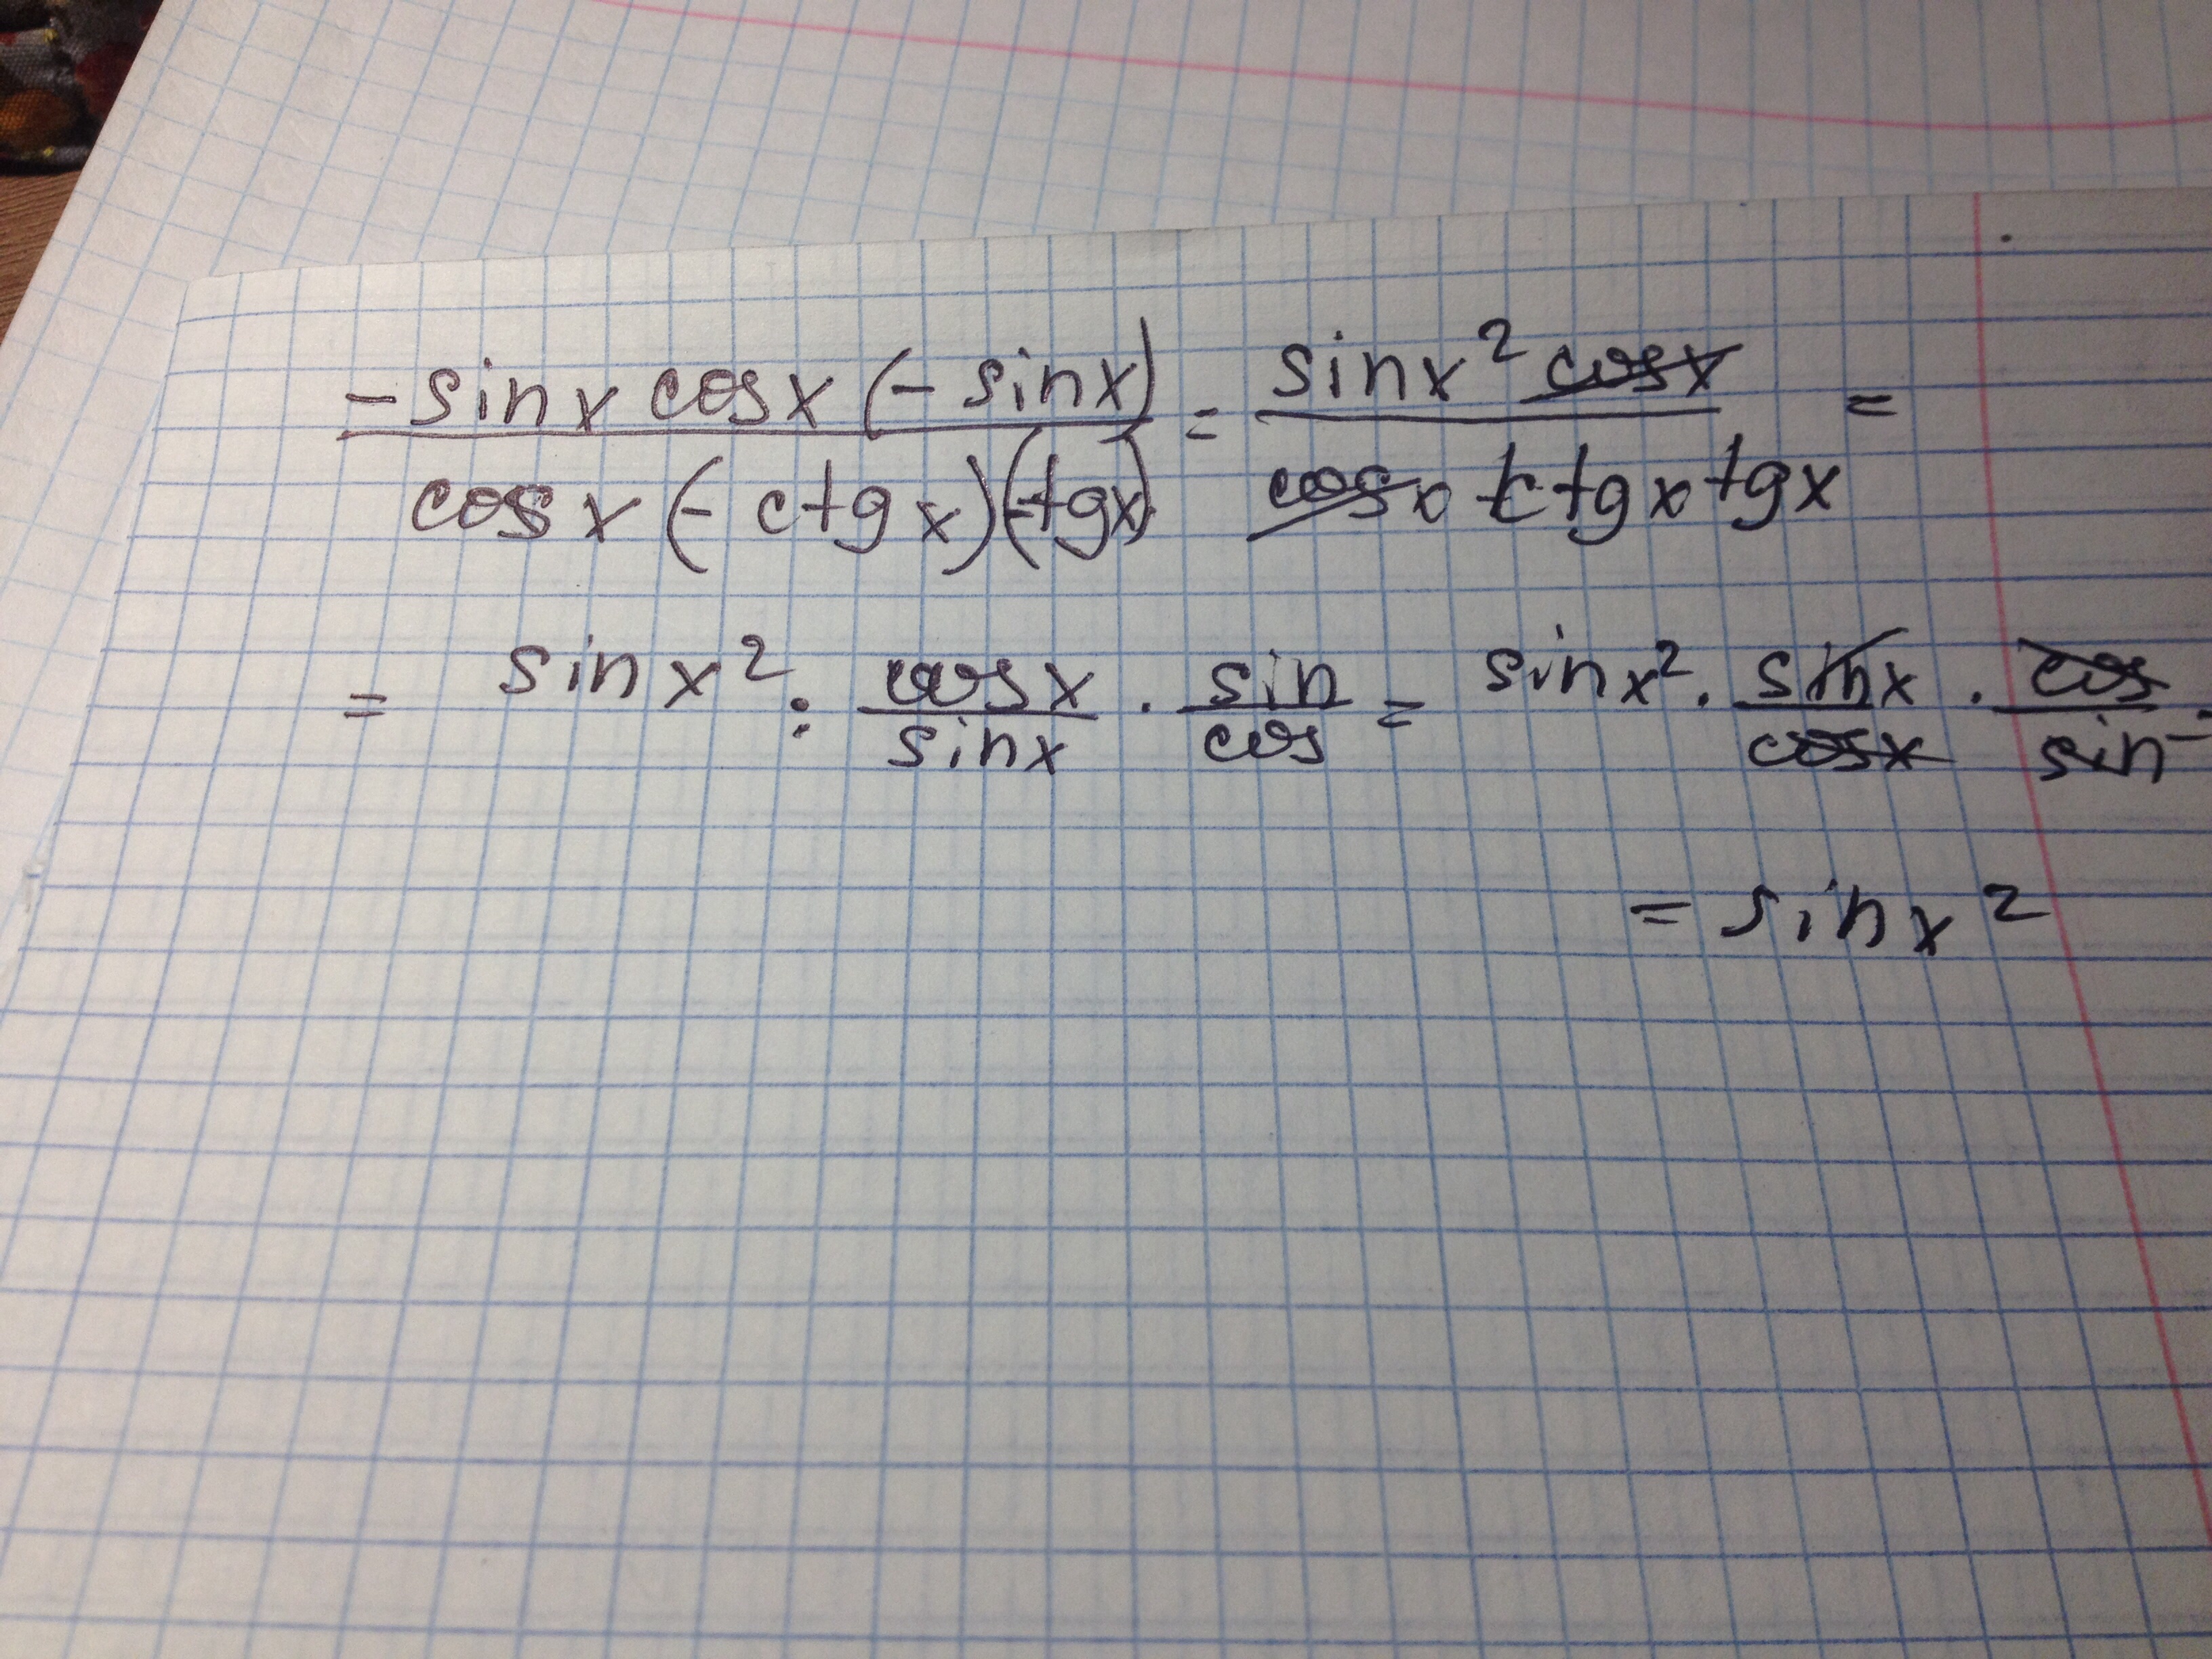 -sinx cosx (- sinx) / cosx (- ctgx)(-tgx) = sinx² cosx / cosx ctgx tgx =
= sinx² : cosx/sinx · sin/cos = sinx² · sinx/cosx · cos/sin =
= sinx²